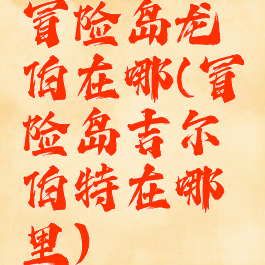 冒险岛龙
伯在哪(冒
险岛吉尔
伯特在哪
里)